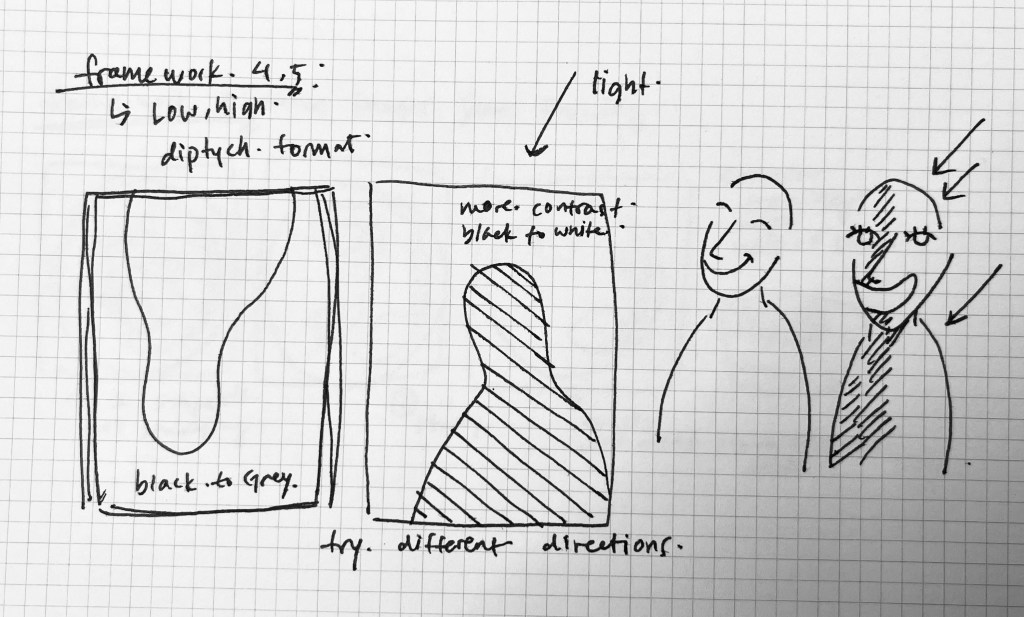 framework. 4,5:
↳ Low, high.
diptych. format.
light.
more. contrast.
black to white.
black. to Grey.
try. different directions.